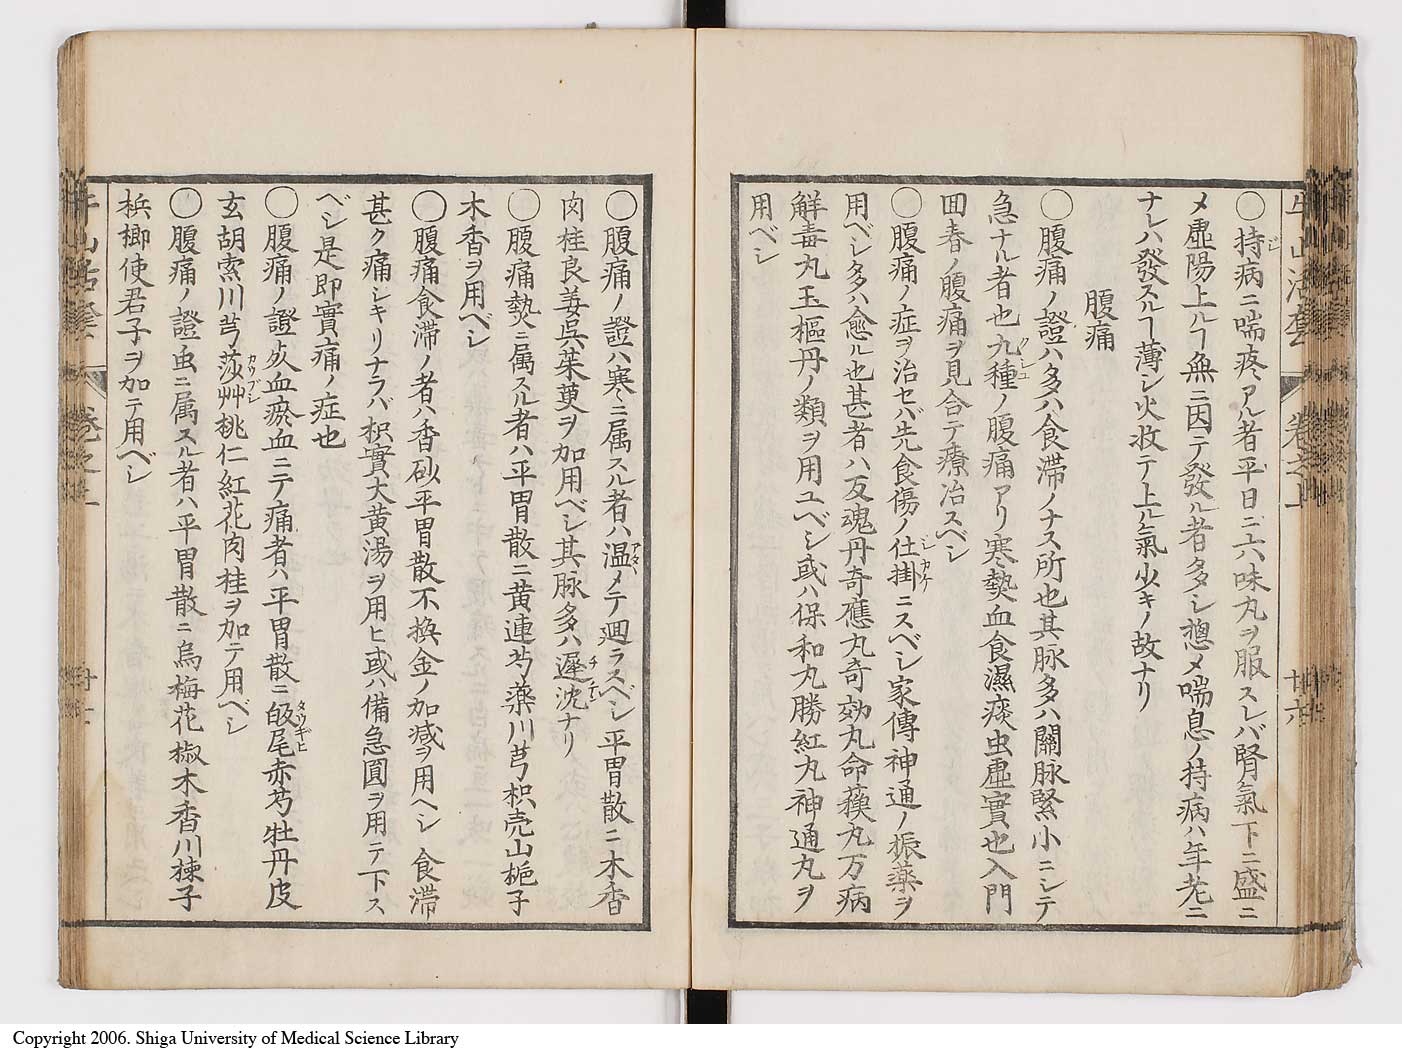 牛山活套 卷之上 廿六
○持病ニ喘疼アル者平日ニ六味丸ヲ服スレバ腎氣下ニ盛ニ
メ虚陽上ルヿ無ニ因テ發ル者タタシ惣メ喘息ノ持病ハ年老ニ
ナレハ發スルヿ薄シ火收テ上ル氣少キノ故ナリ
腹痛
○腹痛ノ證ハ多ハ食滞ノナス所也其脉多ハ關脉緊小ニシテ
急ナル者也九種ノ腹痛アリ寒熱血食濕痰虫虚實也入門
回春ノ腹痛ヲ見合テ療治スベシ
○腹痛ノ症ヲ治セバ先食傷ノ仕掛ニスベシ家傳神通ノ振藥ヲ
用ベシ多ハ愈ル也甚者ハ反魂丹奇應丸奇効丸命蘓丸万病
解毒丸玉樞丹ノ類ヲ用ユベシ或ハ保和丸勝紅丸神通丸ヲ
用ベシ
○腹痛ノ證ハ寒ニ属スル者ハ温メテ廻ラスベシ平胃散ニ木香
肉桂良姜呉茱萸ヲ加用ベシ其脉多ハ遲沈ナリ
○腹痛熱ニ属スル者ハ平胃散ニ黄連芍藥川芎枳壳山梔子
木香ヲ用ベシ
○腹痛食滞ノ者ハ香砂平胃散不換金ノ加减ヲ用ヘシ食滞
甚ク痛シキリナラバ枳實大黄湯ヲ用ヒ或ハ備急圓ヲ用テ下ス
ベシ是即實痛ノ症也
○腹痛ノ證死血瘀血ニテ痛者ハ平胃散ニ皈尾赤芍牡丹皮
玄胡索川芎莎艸桃仁紅花肉桂ヲ加テ用ベシ
○腹痛ノ證虫ニ属スル者ハ平胃散ニ烏梅花椒木香川楝子
梹榔使君子ヲ加テ用ベシ
牛山活套 卷之上
Copyright 2006. Shiga University of Medical Science Library